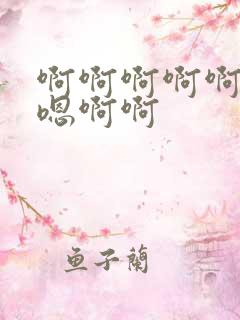 啊啊啊啊啊
嗯啊啊
鱼子蘭